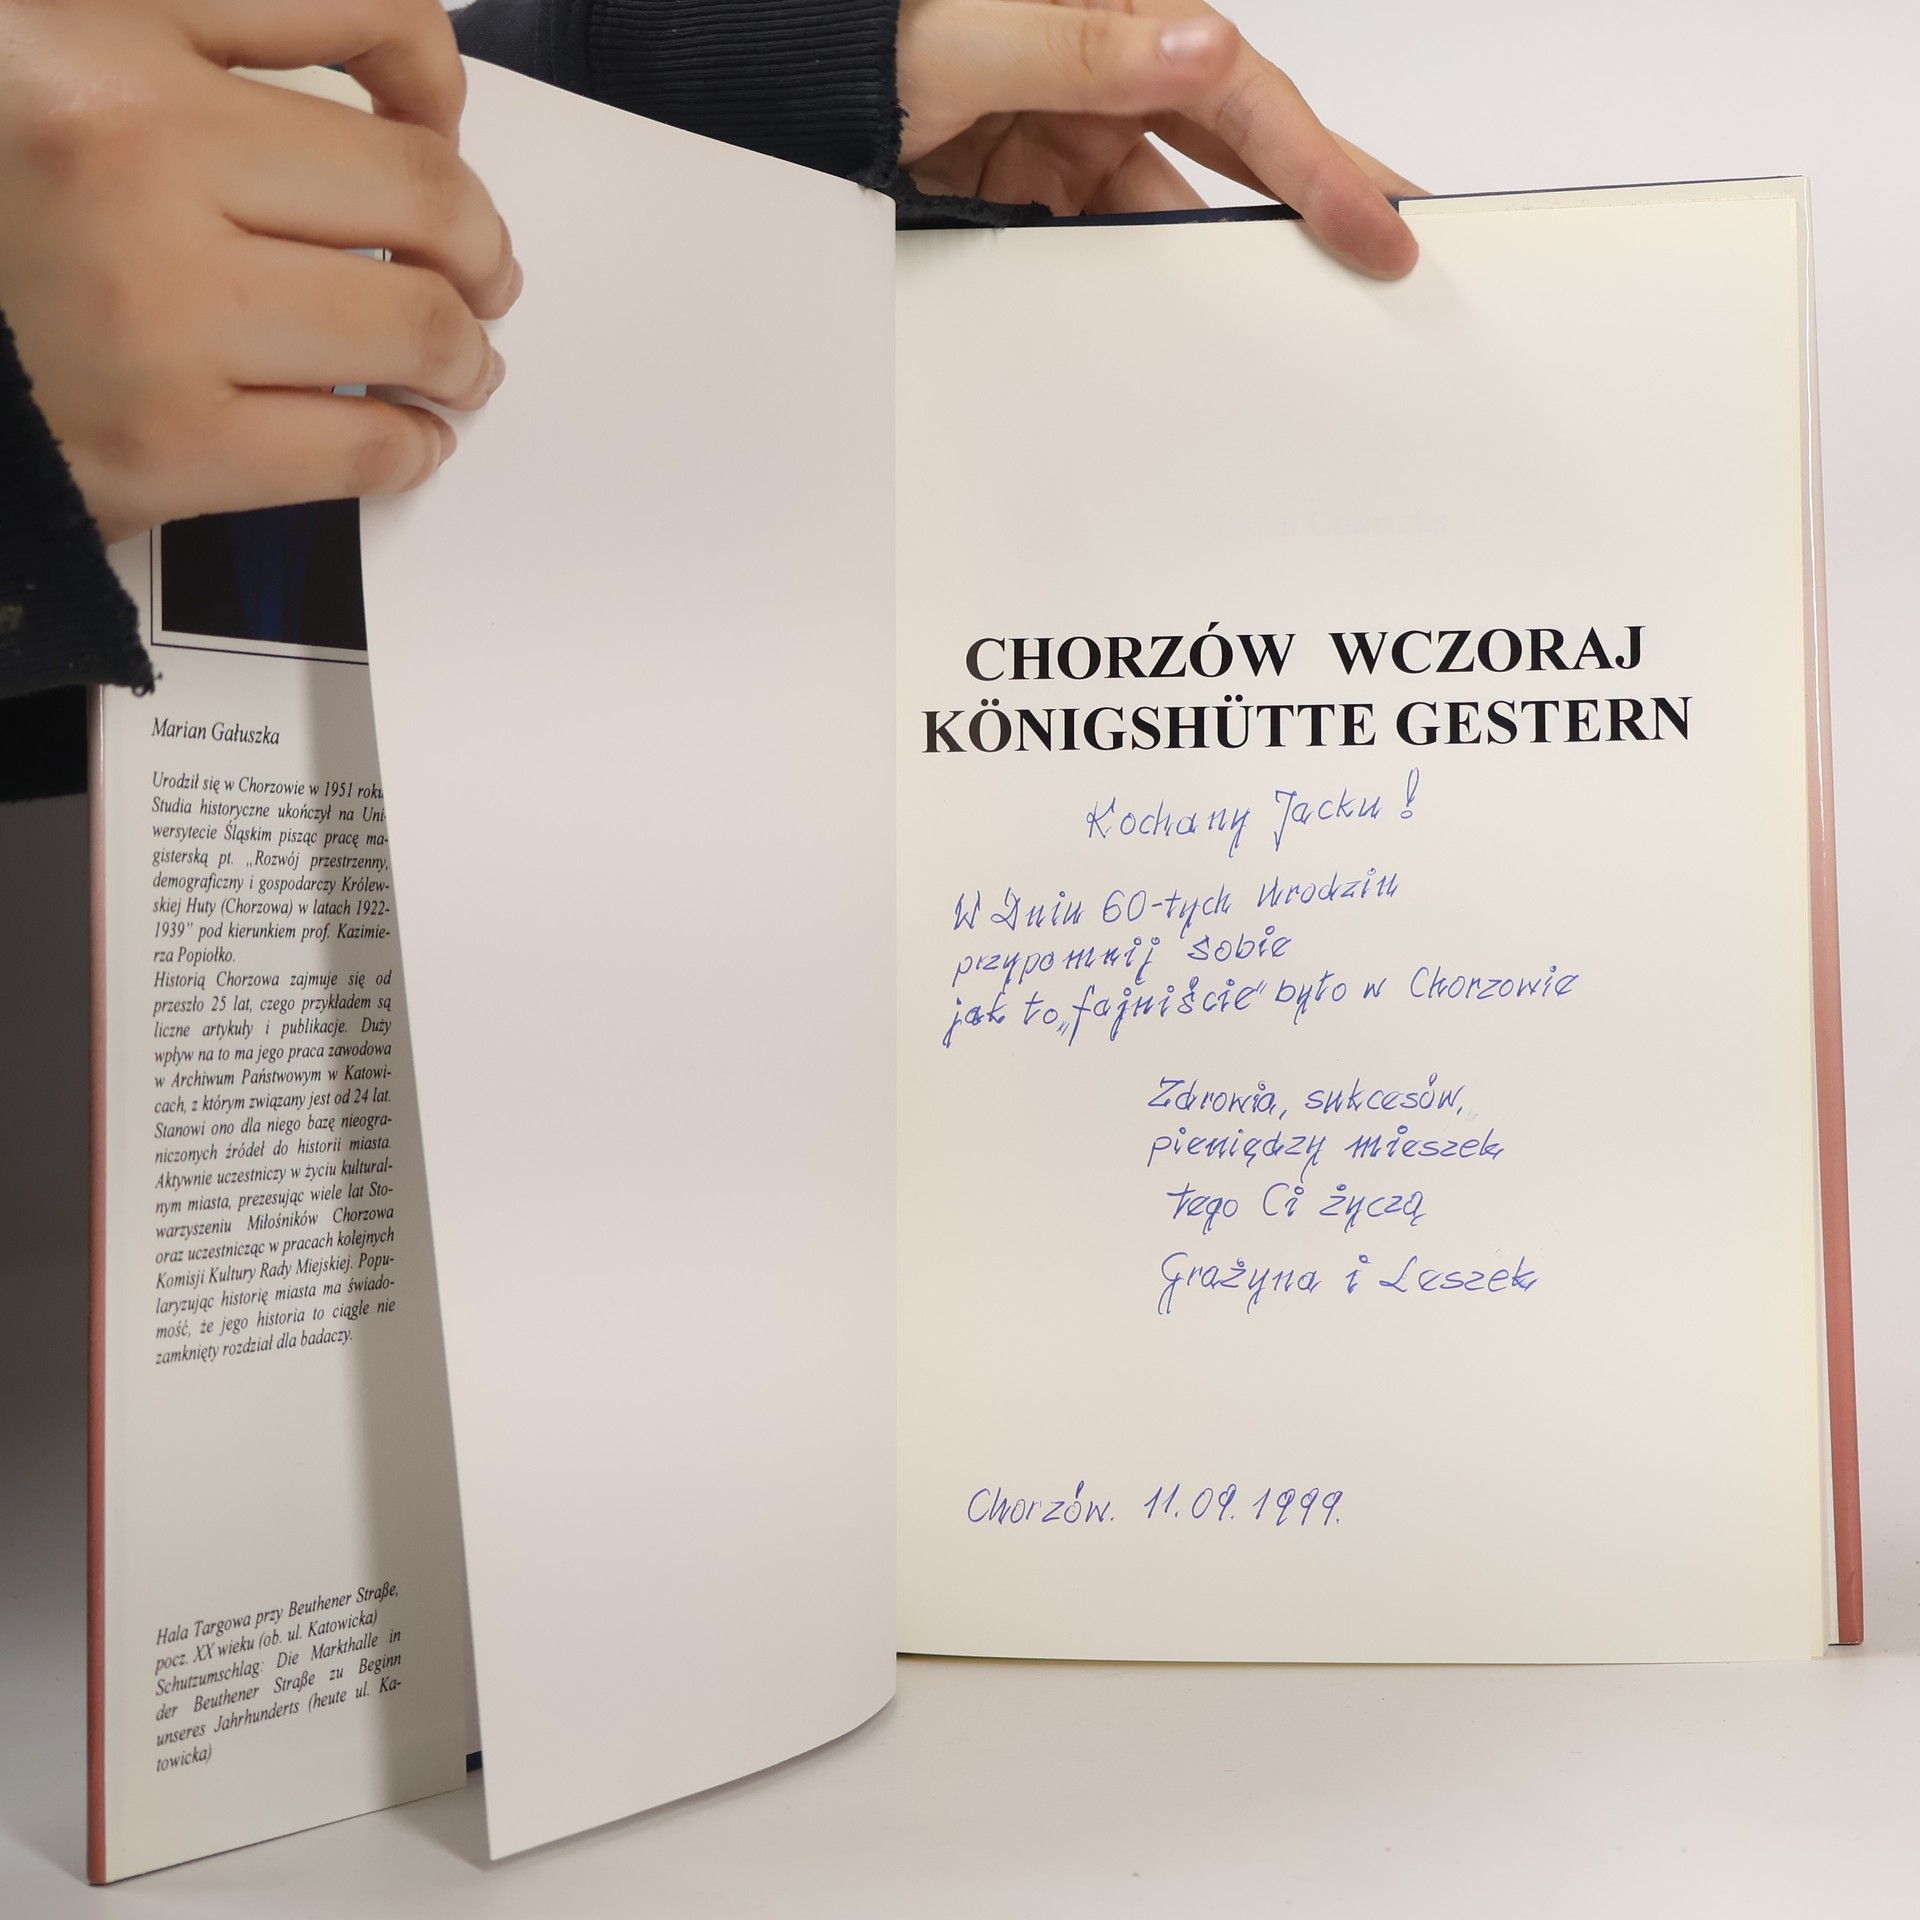 Marian Gałuszka
Urodził się w Chorzowie w 1951 roku.
Studia historyczne ukończył na Uni-
wersytecie Śląskim pisząc pracę ma-
gisterską pt. „Rozwój przestrzenny,
demograficzny i gospodarczy Królew-
skiej Huty (Chorzowa) w latach 1922-
1939” pod kierunkiem prof. Kazimie-
rza Popiołko.
Historią Chorzowa zajmuje się od
przeszło 25 lat, czego przykładem są
liczne artykuły i publikacje. Duży
wpływ na to ma jego praca zawodowa
w Archiwum Państwowym w Katowi-
cach, z którym związany jest od 24 lat.
Stanowi ono dla niego bazę nieogra-
niczonych źródeł do historii miasta.
Aktywnie uczestniczy w życiu kultural-
nym miasta, prezesując wiele lat Sto-
warzyszeniu Miłośników Chorzowa
oraz uczestnicząc w pracach kolejnych
Komisji Kultury Rady Miejskiej. Popu-
laryzując historię miasta ma świado-
mość, że jego historia to ciągle nie
zamknięty rozdział dla badaczy.
Hala Targowa przy Beuthener Straße,
pocz. XX wieku (ob. ul. Katowicka)
Schutzumschlag: Die Markthalle in
der Beuthener Straße zu Beginn
unseres Jahrhunderts (heute ul. Ka-
towicka)
Marian Gałuszka
CHORZÓW WCZORAJ
KÖNIGSHÜTTE GESTERN
Kochany Jacku!
W Dniu 60-tych Urodzin
przypomnij sobie
jak to „fajniście” było w Chorzowie
Zdrowia, sukcesów,
pieniędzy mieszek
tego Ci życzą
Grażyna i Leszek
Chorzów. 11.09.1999.